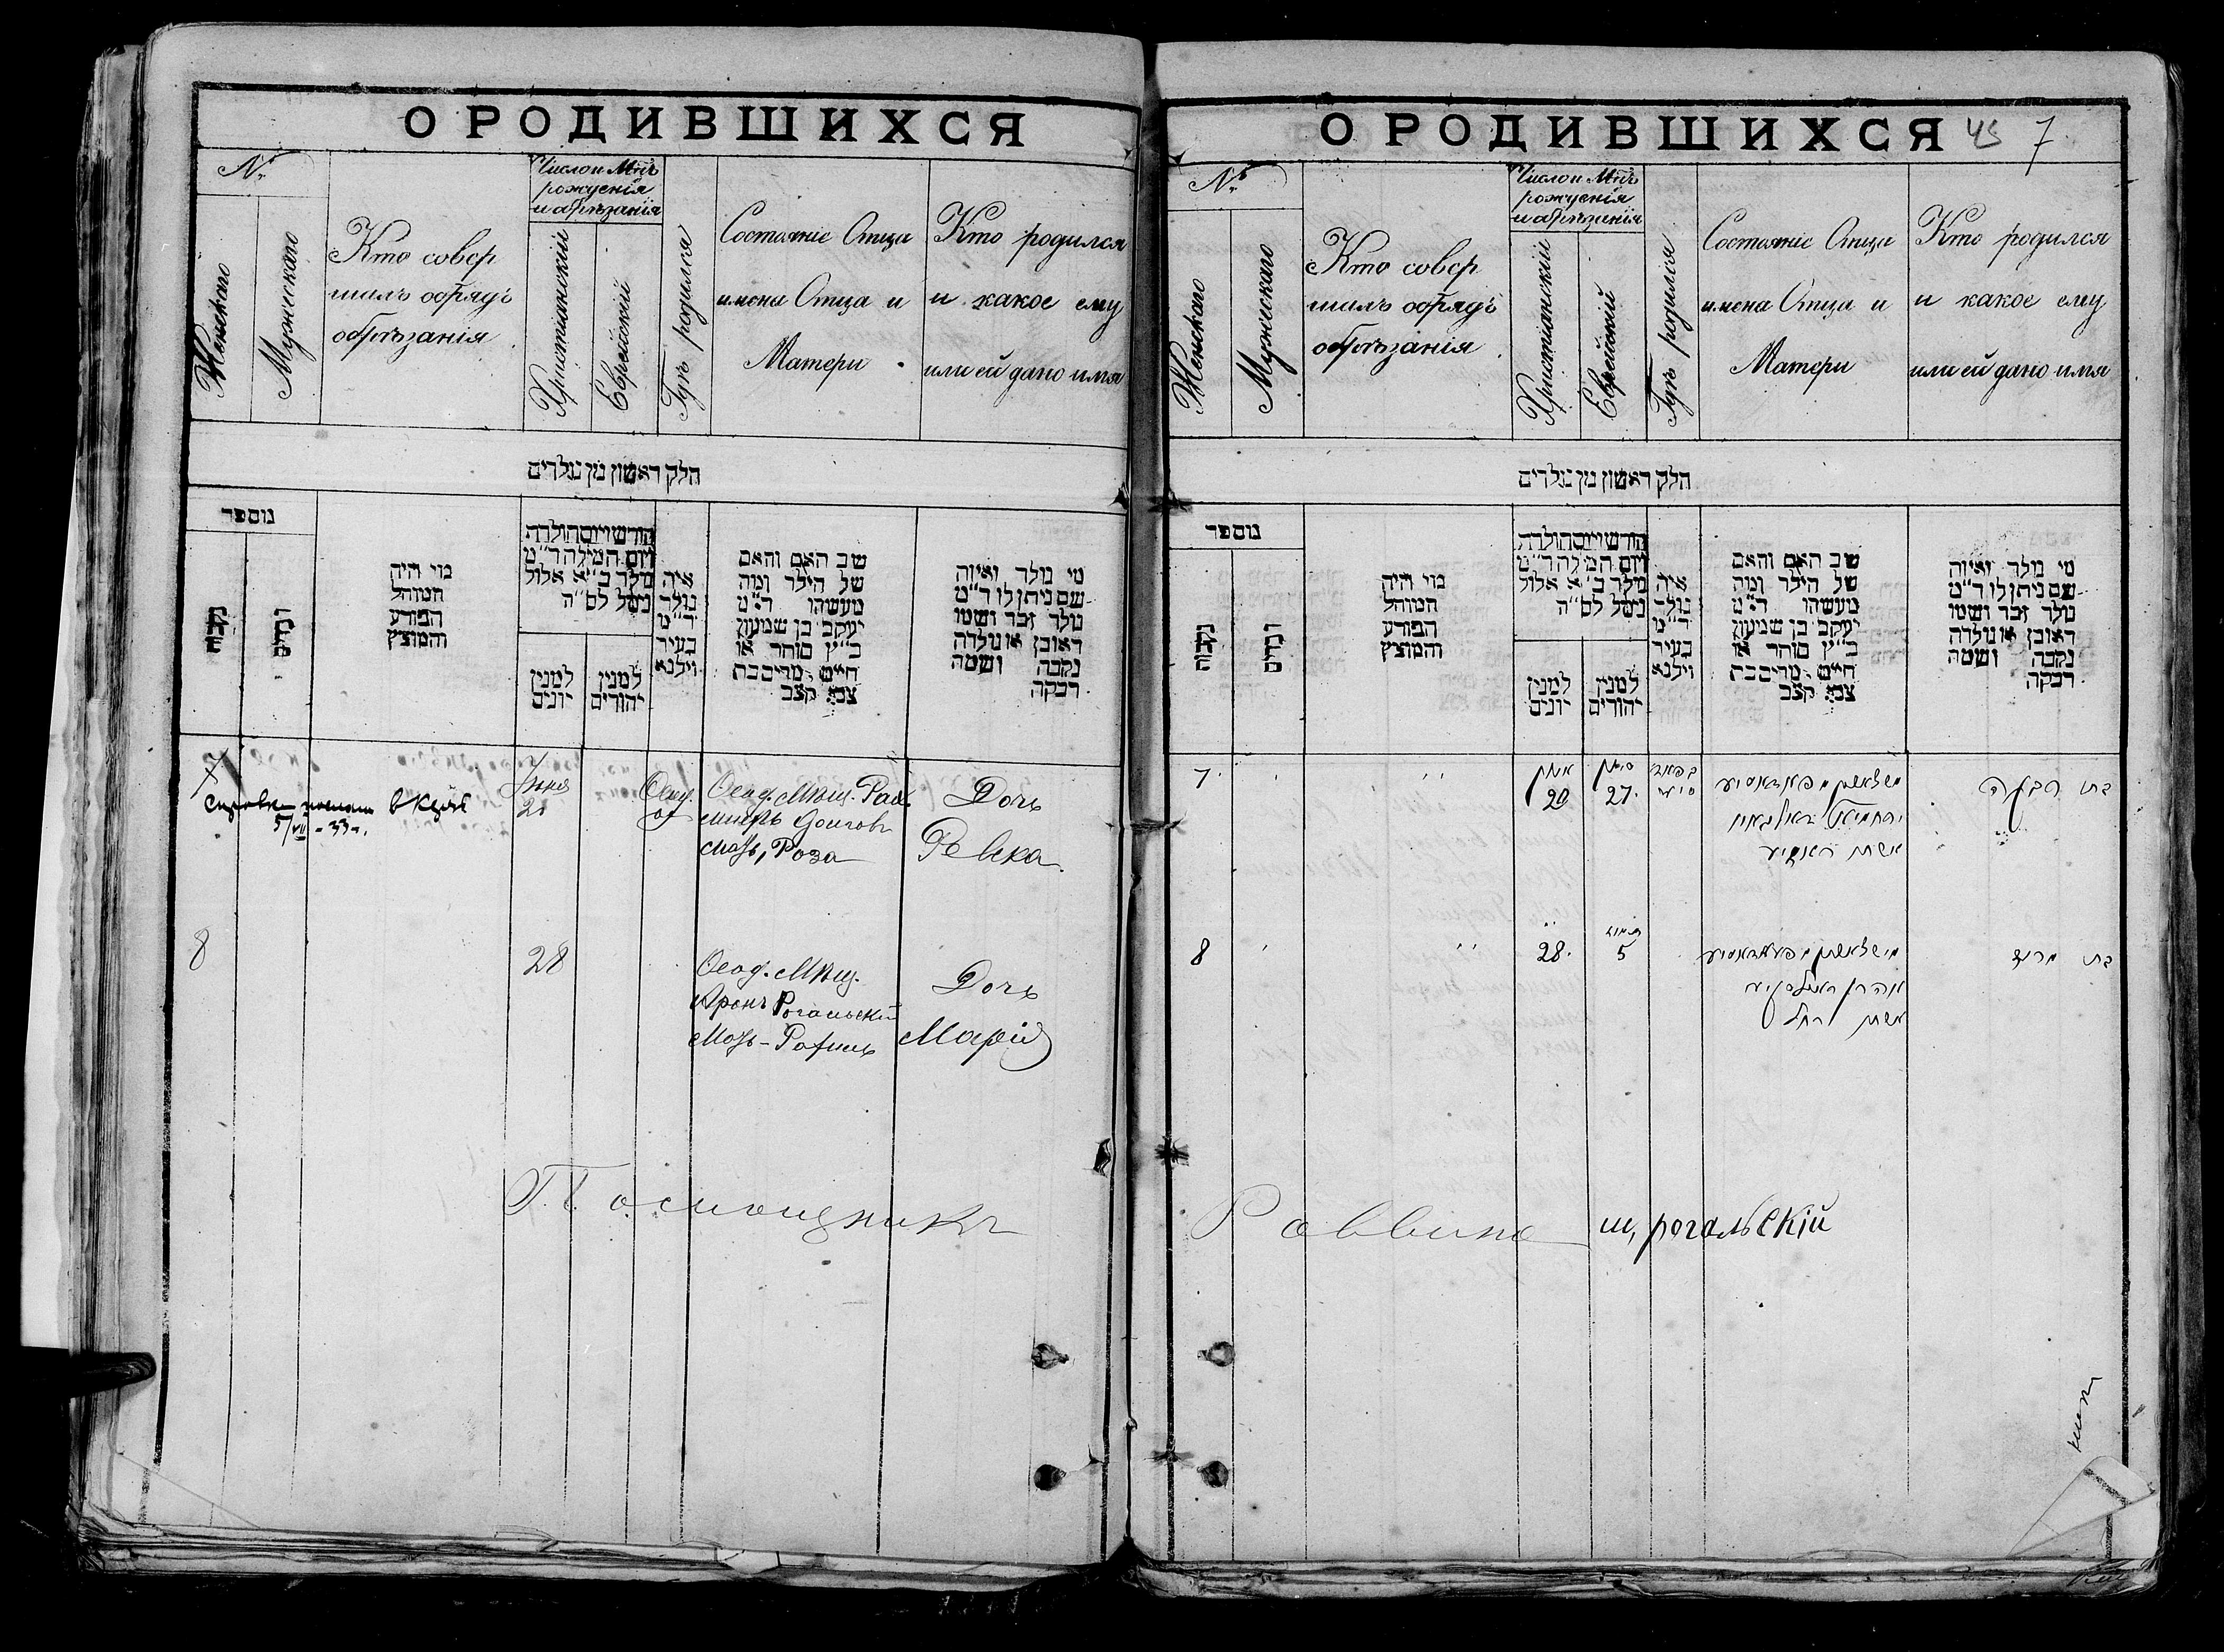 О РОДИВШИХСЯ
№
Женскаго
Мужескаго
Кто совер
шалъ обрядъ
обрѣзанія
Число и Мѣц
рожденія
и обрѣзанія
Христіанскій
Еврейскій
Гдѣ родился
Состояніе Отца
имена Отца и
Матери
Кто родился
и какое ему
или ей дано имя
חלק ראשון מן נולדים
נומפר
נקבות
זכרים
מוי היה
המוהל
הפורע
והמוצץ
חודש ויום הולדה
ויום המילה ד״מ
נולד ב״א אלול
נימל לס״ה
למנין
יונים
למנין
יהודים
איה
נולד
ד״מ
בעיר
ווילנא
שם האב והאם
של הילד ומה
מעשהו ד״מ
יעקב בן שמעון
כ״ץ סוחר או
חיים מרים בת
צבי קצב
מי נולד ואיזה
שם ניתן לו ד״מ
נולד זכר ושמו
ראובן או נולדה
נקבה ושמה
רבקה
7
Іюня
20
Осад. Мѣщ.
Мать, Роза
Дочь
Ревка
5/VII - 33 г.
8
28
Осад. Мѣщ.
Аронъ Рогальскій
Мать - Рахиль
Дочь
Марія
Помощникъ
О РОДИВШИХСЯ
45
7
№
Женскаго
Мужескаго
Кто совер
шалъ обрядъ
обрѣзанія
Число и Мѣц
рожденія
и обрѣзанія
Христіанскій
Еврейскій
Гдѣ родился
Состояніе Отца
имена Отца и
Матери
Кто родился
и какое ему
или ей дано имя
חלק ראשון מן נולדים
נומפר
נקבות
זכרים
מוי היה
המוהל
הפורע
והמוצץ
חודש ויום הולדה
ויום המילה ד״מ
נולד ב״א אלול
נימל לס״ה
למנין
יונים
למנין
יהודים
איה
נולד
ד״מ
בעיר
ווילנא
שם האב והאם
של הילד ומה
מעשהו ד״מ
יעקב בן שמעון
כ״ץ סוחר או
חיים מרים בת
צבי קצב
מי נולד ואיזה
שם ניתן לו ד״מ
נולד זכר ושמו
ראובן או נולדה
נקבה ושמה
רבקה
7
20
סיון
27
ירחמיאל
אשתו
בת רבקה
8
28
תמוז
5
אהרן
אשתו רחל
בת
Раввина ш, рогальскій